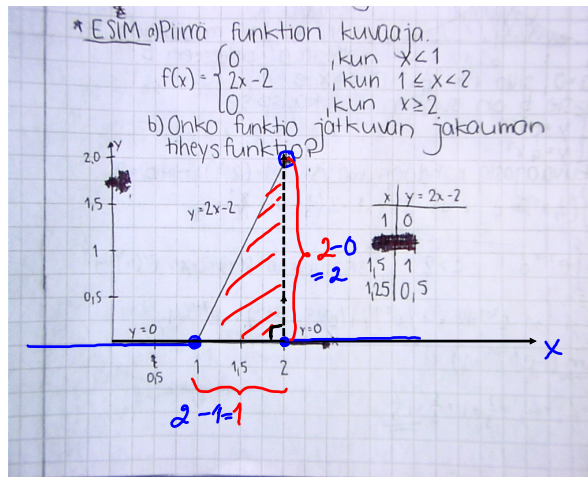 * ESIM a) Piirrä funktion kuvaaja.
f(x) = { 0 , kun x < 1
2x-2 , kun 1 ≤ x < 2
0 , kun x ≥ 2
b) Onko funktio jatkuvan jakauman
tiheysfunktio?
y
2,0
1,5
1
0,5
y = 2x-2
2-0
= 2
x | y = 2x-2
1 | 0
1,5 | 1
1,25 | 0,5
y = 0
y = 0
x
0,5 1 1,5 2
2-1=1